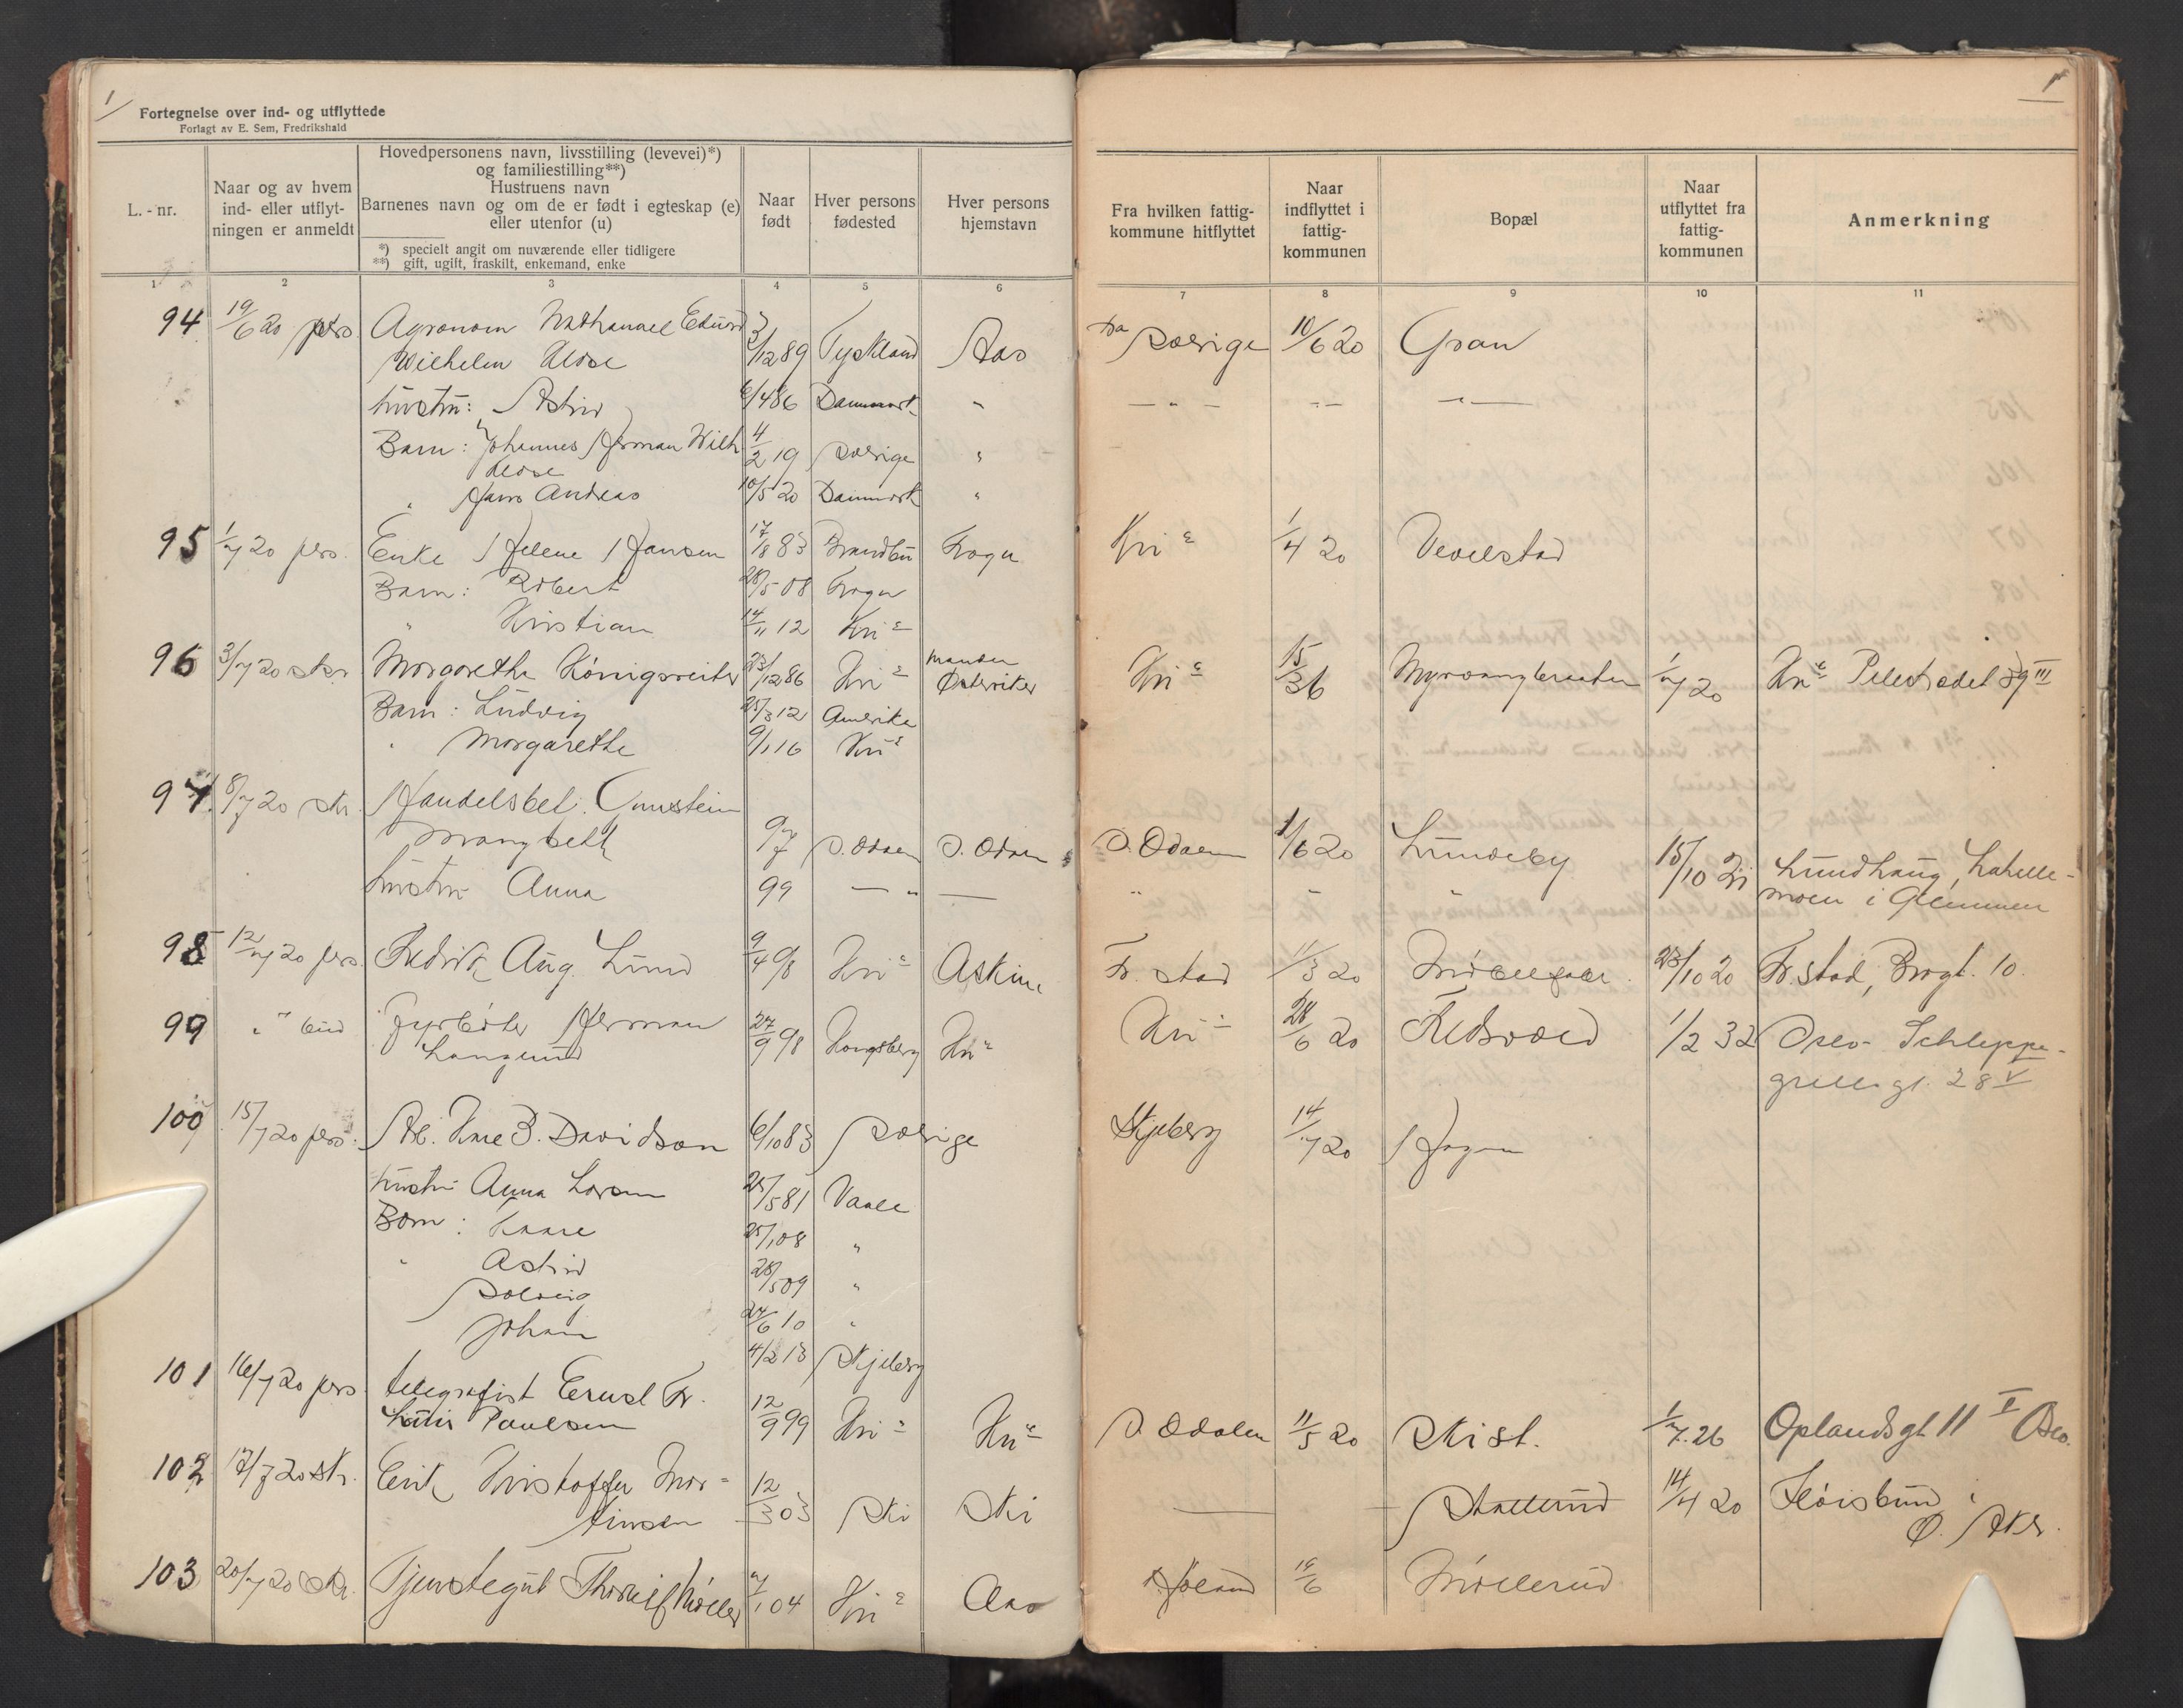 1/
Fortegnelse over ind- og utflyttede
Forlagt av E. Sem, Fredrikshald
L. - nr.
Naar og av hvem
ind- eller utflyt-
ningen er anmeldt
Hovedpersonens navn, livsstilling (levevei)*)
og familiestilling**)
Hustruens navn
Barnenes navn og om de er født i egteskap (e)
eller utenfor (u)
*) specielt angit om nuværende eller tidligere
**) gift, ugift, fraskilt, enkemand, enke
Naar
født
Hver persons
fødested
Hver persons
hjemstavn
Fra hvilken fattig-
kommune hitflyttet
Naar
indflyttet i
fattig-
kommunen
Bopæl
Naar
utflyttet fra
fattig-
kommunen
Anmerkning
1 2 3 4 5 6 7 8 9 10 11
94 19/6 20 pers. Agronom Nathanael Eduard
Wilhelm Klose 3/12 89 Tyskland Aas fra Sverige 10/6 20 Gran
hustru: Astrid 6/4 86 Danmark " — " — " — " —
Barn: Johannes Herman Wilh. 4/2 19 Sverige "
Klose
" Hans Andreas 10/5 20 Danmark "
95 1/7 20 pers. Enke Helene Hansen 17/8 83 Brandbu Frogn Kria 1/4 20 Vevelstad
Barn: Robert 28/5 08 Frogn
" Kristian 14/11 12 Kria
96 3/7 20 skr. Margarethe Königsreiter 23/12 86 Kria manden Østeriker Kria 15/3 6 1/7 20 Kria Pilestrædet 39 III
Barn: Ludvig 25/3 12 Amerika
" Margarethe 9/1 16 Kria
97 8/7 20 skr. Handelsbet. Gunstein
Brangbeth 97 S. Odalen S. Odalen S. Odalen 1/6 20 Lundeby 15/10 21 Lundhaug, Lahelle-
hustru Anna 99 — " — " " " moen i Glemmen
98 12/7 20 pers. Fredrik Aug. Lund 9/4 98 Kria Askim Fr.stad 1/3 20 23/10 20 Fr.stad, Brogt. 10.
99 " bud Fyrbøter Herman
Langrund 27/9 98 Kongsberg Kria Kria 28/6 20 Kedsvold 1/2 32 Oslo Schleppe-
grellsgt. 28 V
100 15/7 20 pers. Arb. Kare B. Davidson 6/10 83 Sverige Skjeberg 14/7 20 Hagen
hustru Anna Larsen 25/5 81 Vaale
Børn: Kaare 25/1 08 "
" Astrid 28/5 09 "
Solveig 24/6 10 "
Johan 4/2 13 Skjeberg
101 16/7 20 pers. telegrafist Ernst Fr.
Louis Paulsen 12/9 99 Kria Kria S. Odalen 11/5 20 Ski st. 1/7 26 Oplandsgt 11 I Oslo.
102 17/7 20 skr. Erik Kristoffer Mor-
tinsen 12/3 03 Ski Ski — Skallerud 14/4 20 Fløisbund i
Ø. Aker.
103 20/7 20 skr. Tjenstegut Thorleif Møller 7/1 04 Kria Aas Høland 15/6 Møllerud